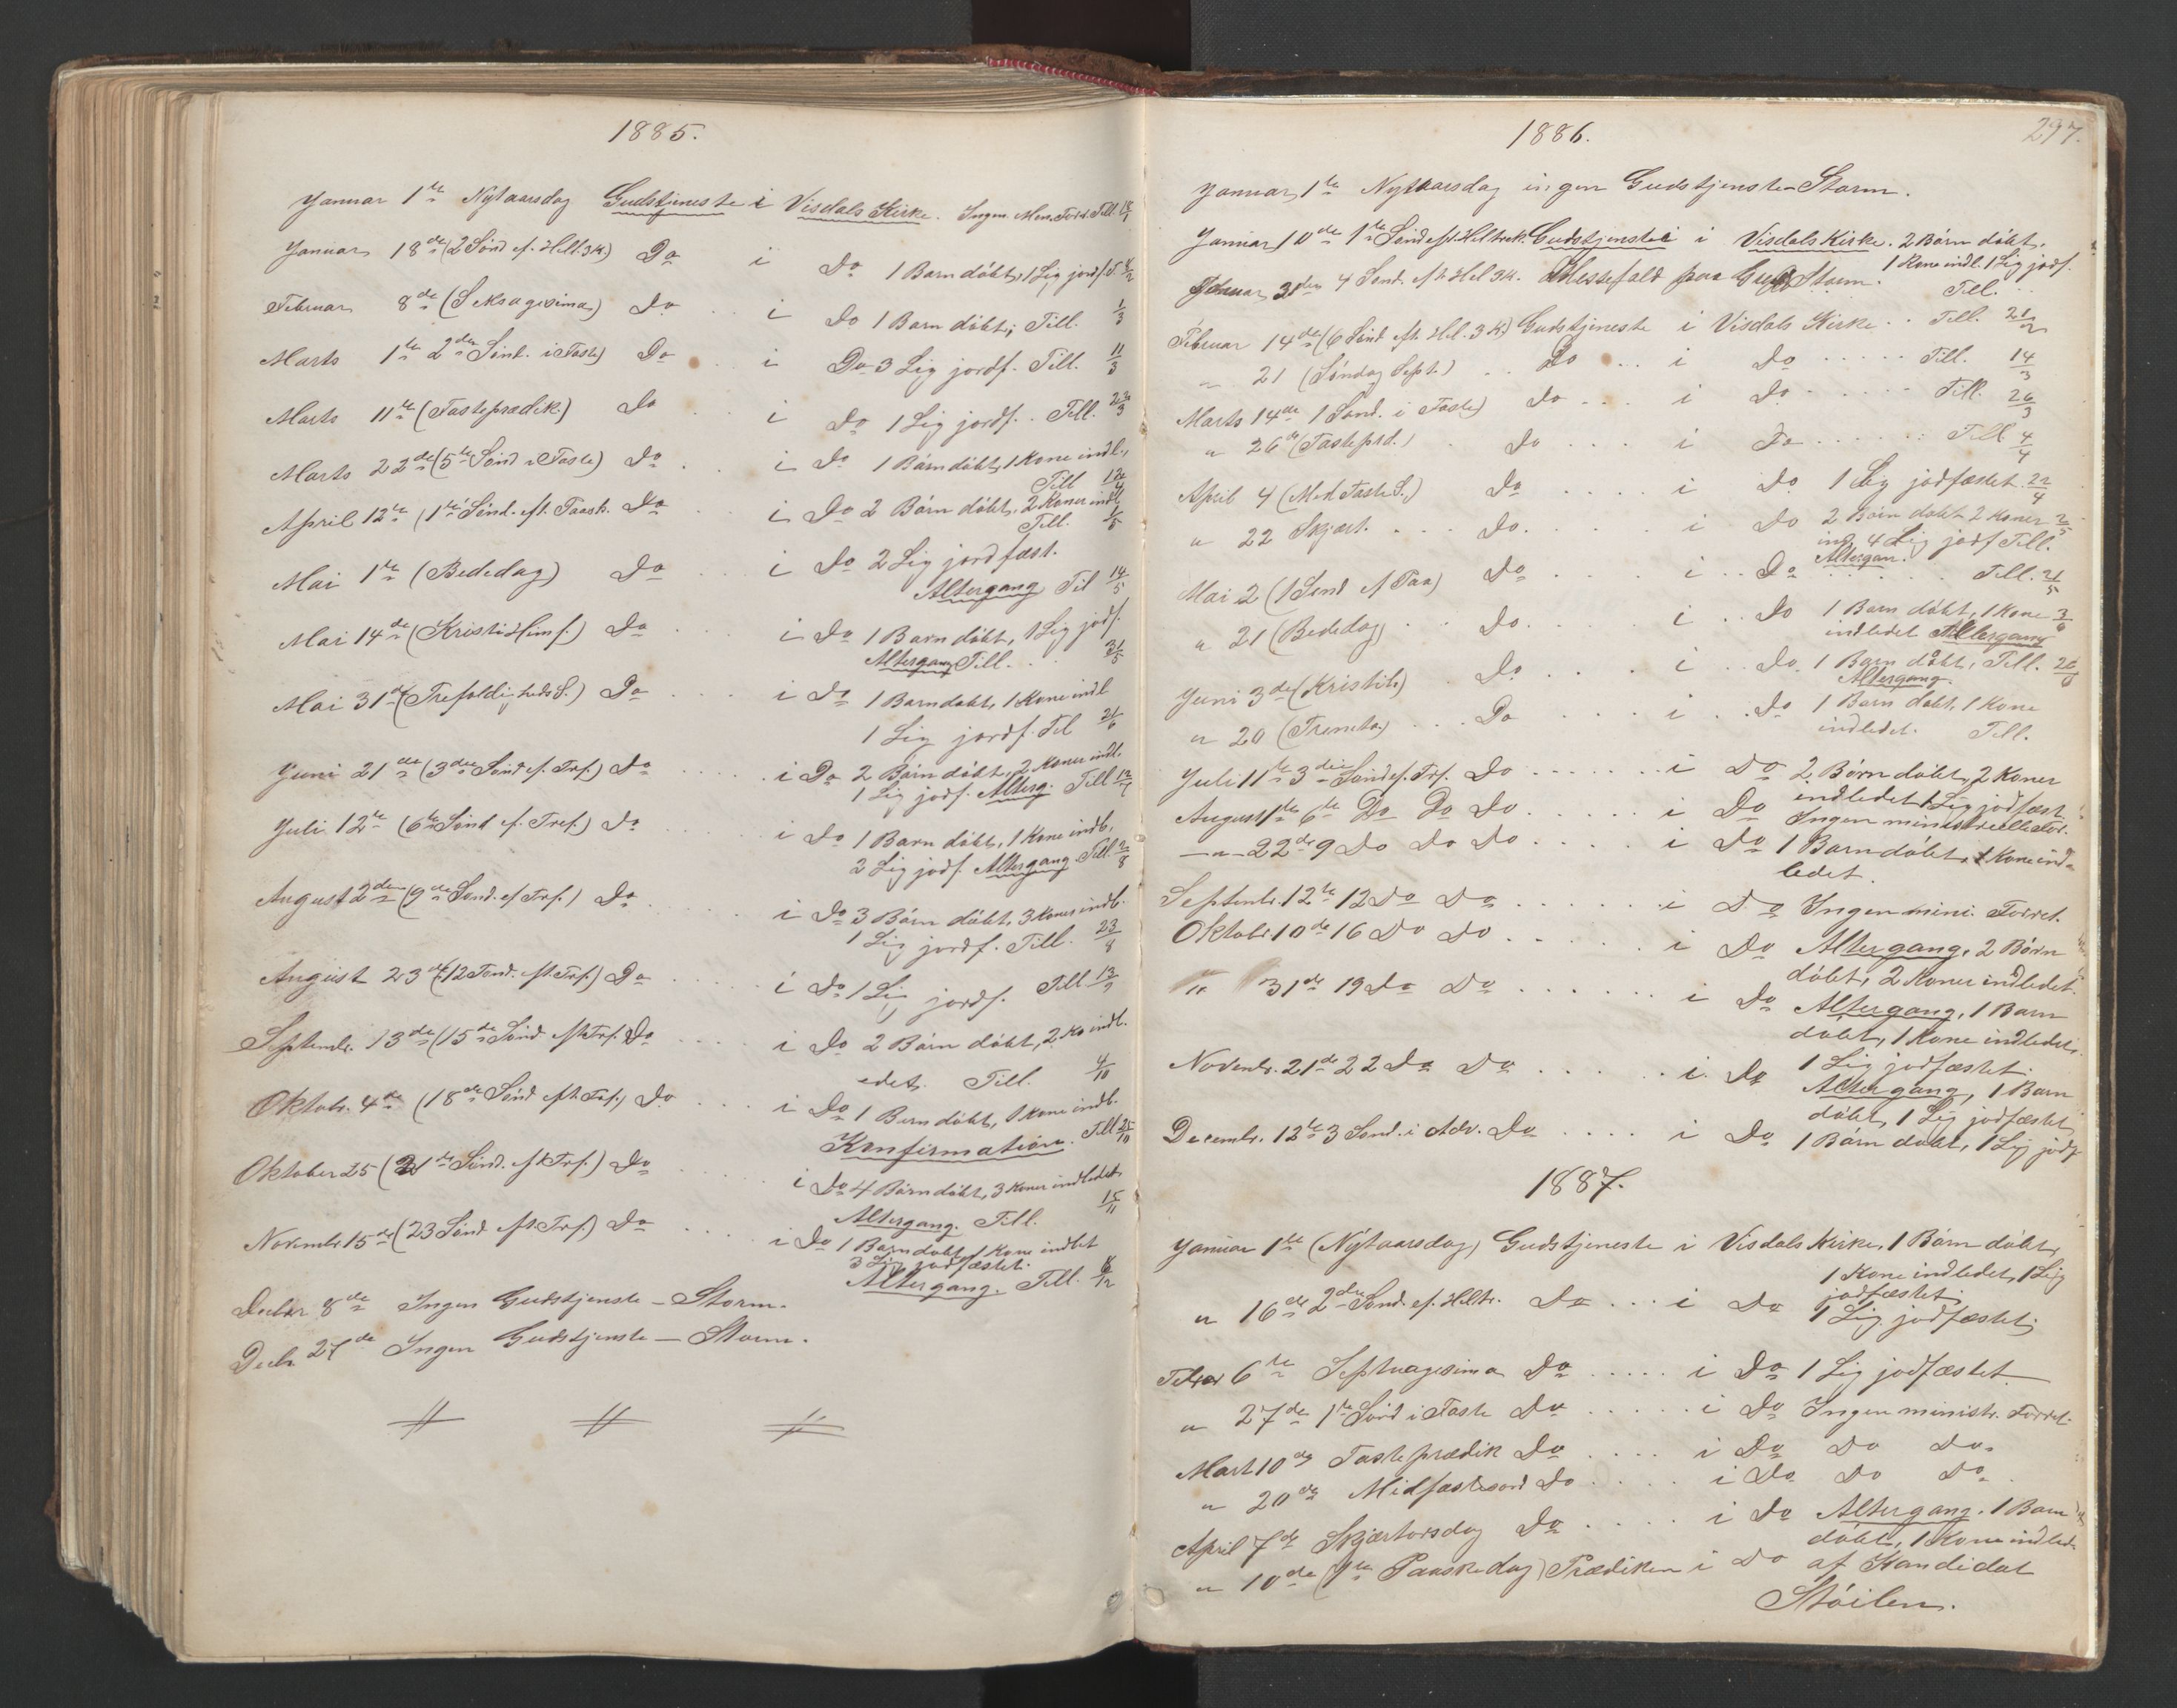 1885.
Januar 1te Nytaarsdag Gudstjeneste i Visdals Kirke. Ingen Min. Forr. Till. 18/1
Januar 18de (2 Sønd ef. Hell. 3K.) Do i Do 1 Barn døbt, 1 Lig jordf. T. 8/2
Februar 8de (Seksagesima) Do . . i Do 1 Barn døbt, Till. 1/3
Marts 1te 2den Sønd. i Faste) Do . . i Do 3 Lig jordf. Till. 11/3
Marts 11te (Fasteprædik.) Do . i Do 1 Lig jordf. . Till. 22/3
Marts 22de (5te Sønd i Faste) Do . . i Do 1 Barn døbt, 1 Kone indl.,
Till 12/4
April 12te (1te Sønd. eft. Paask. Do . . i Do 2 Børn døbt, 2 Koner indl
Till. 1/5
Mai 1te (Bededag) Do . . i Do 2 Lig jordfæst.
Altergang Til 14/5
Mai 14de (Kristi Himf.) Do . . . i Do 1 Barn døbt, 1 Lig jodf.
Altergang Till. . . 31/5
Mai 31te (Trefoldigheds S.) Do . . . . i Do 1 Barn døbt, 1 Kone indl
1 Lig jordf. Til 21/6
Juni 21de (3die Sønd ef. Trf.) Do . . . . . i Do 2 Børn døbt, 2 Koner indl.
1 Lig jodf. Alterg. Till 12/7
Juli 12te (6te Sønd ef. Tref.) Do . . . . i Do 1 Barn døbt, 1 Kone indb,
2 Lig jodf. Altergang. Till. 2/8
August 2den (9de Sønd. ef Trf.) Do . . . . . i Do 3 Børn døbt, 3 Koner indb.
1 Lig jordf. Till. 23/8
August 23de (12 Sønd. eft. Trf.) Do . . . . . i Do 1 Lig jordf. Till 13/9
Septembr. 13de (15de Sønd eft Trf. Do . . . . i Do 2 Børn døbt, 2 Ko indl.
edet. Till. 4/10
Oktobr. 4de (18de Sønd eft. Trf.) Do . . . i Do 1 Barn døbt, 1 Kone indb.
Konfirmation. Till 25/10
Oktober 25 (21de Sønd. eft Trf.) Do . . . . i Do 4 Børn døbt, 3 Koner indledet
Altergang. Till. 15/11
Novembr 15de (23 Sønd eft. Trf.) Do . . . i Do 1 Barn døbt, 1 Kone indlet
3 Lig jodfæstet.
Altergang. Till. 8/12
Decbr 8de Ingen Gudstjenste – Storm.
Decbr 27de Ingen Gudstjenste – Storm.
297.
1886.
Januar 1te Nytaarsdag ingen Gudstjenste – Storm.
Januar 10de 1te Sønd eft. Hel trek. Gudstjenste i Visdals Kirke. 2 Børn døbt,
1 Kone indl. 1 Lig jodf.
Januar 31te 4 Sønd. eft Hel 3K. Messefald paa Grund Storm. Till. . .
Februar 14de (6 Sønd eft. Hel. 3 K.) Gudstjeneste i Visdals Kirke. . Till. 21/2
" 21 (Søndag Sept.) . . Do . . i Do . . . . . Till. 14/3
Marts 14de 1 Sønd. i Faste) Do . . . i Do . . . . . Till. 26/3
" 26de (Fasteprd.) . Do . . . i Do . . . . . . Till 4/4
April 4 (Mid Faste S.) Do . . . . i Do 1 Lig jodfæstet. 22/4
" 22 Skjært. . . . Do. . . . . i Do 2 Børn døbt 2 Koner 2/5
ind. 4 Lig jodf Till.
Mai 2 (1 Sønd ef Paa) Do . . . . i . . Do Altergan. . . . . Till. 21/5
" 21 (Bededag) . . Do. . . . . i . . Do 1 Barn døbt, 1 Kone 3/6
indledet Altergang
Juni 3de (Kristih) . Do . . . . i . . Do 1 Barn døbt, Till. 20/6
Altergang.
" 20 (Treneta) . . . Do . . . . i . . Do 1 Barn døbt, 1 Kone
indledet. Till.
Juli 11te 3die Sønd ef. Trf. Do . . . . . . . i Do 2 Børn døbt, 2 Koner
indledet 1 Lig jodfæst
August 1te 6te Do Do Do . . . . . . i Do Ingen ministrielle For.
— " — 22de 9 Do Do Do . . . . . i Do 1 Barn døbt, 1 Kone ind-
ledet.
Septembr. 12te 12 Do Do . . . . . . . i Do Ingen mini. Forret.
Oktobr. 10de 16 Do Do . . . . . . . i Do Altergang, 2 Børn
døbt, 2 Koner indledet.
" 31te 19 Do Do . . . . . . . i Do Altergang, 1 Barn
døbt, 1 Kone indledet,
1 Lig jodfæstet.
Novembr. 21de 22 Do Do . . . . . . i. Do Altergang, 1 Barn
døbt, 1 Lig jodfæstet
Decembr. 12te 3 Sønd. i Adv. Do . . . . . i Do 1 Børn døbt, 1 Lig jodf
1887.
Januar 1te (Nytaarsdag) Gudstjeneste i Visdals Kirke, 1 Børn døbt,
1 Kone indledet, 1 Lig
jodfæstet,
" 16de 2den Sønd. ef. Heltr. Do . . . i Do 1 Lig jodfæstet,
Februar 6te Septuagesima Do . . . . . i Do 1 Lig jodfæstet
" 27de 1te Sønd i Faste Do . . . . . i Do Ingen ministr. Forret.
Mart 10de Fasteprædik Do . . . . i Do Do Do.
" 20de Midfastesønd Do . . . . i Do Do Do.
April 7de Skjærtorsdag Do . . . . . i Do Altergang. 1 Barn
døbt, 1 Kone indled.
" 10de (1te Paaskedag) Prædiken i Do af Kandidat
Støilen.